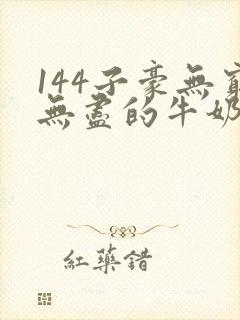 144子豪無窮
無盡的牛奶
紅藥錯